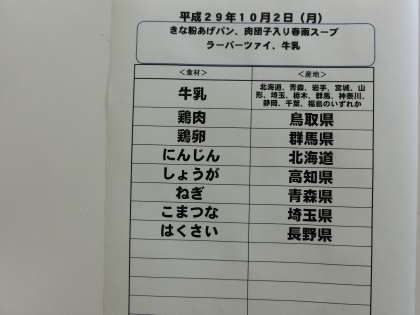 平成２９年１０月２日（月）
きな粉あげパン、肉団子入り春雨スープ
ラーパーツァイ、牛乳
＜食材＞ ＜産地＞
牛乳 北海道、青森、岩手、宮城、山
形、埼玉、栃木、群馬、神奈川、
静岡、千葉、福島のいずれか
鶏肉 鳥取県
鶏卵 群馬県
にんじん 北海道
しょうが 高知県
ねぎ 青森県
こまつな 埼玉県
はくさい 長野県